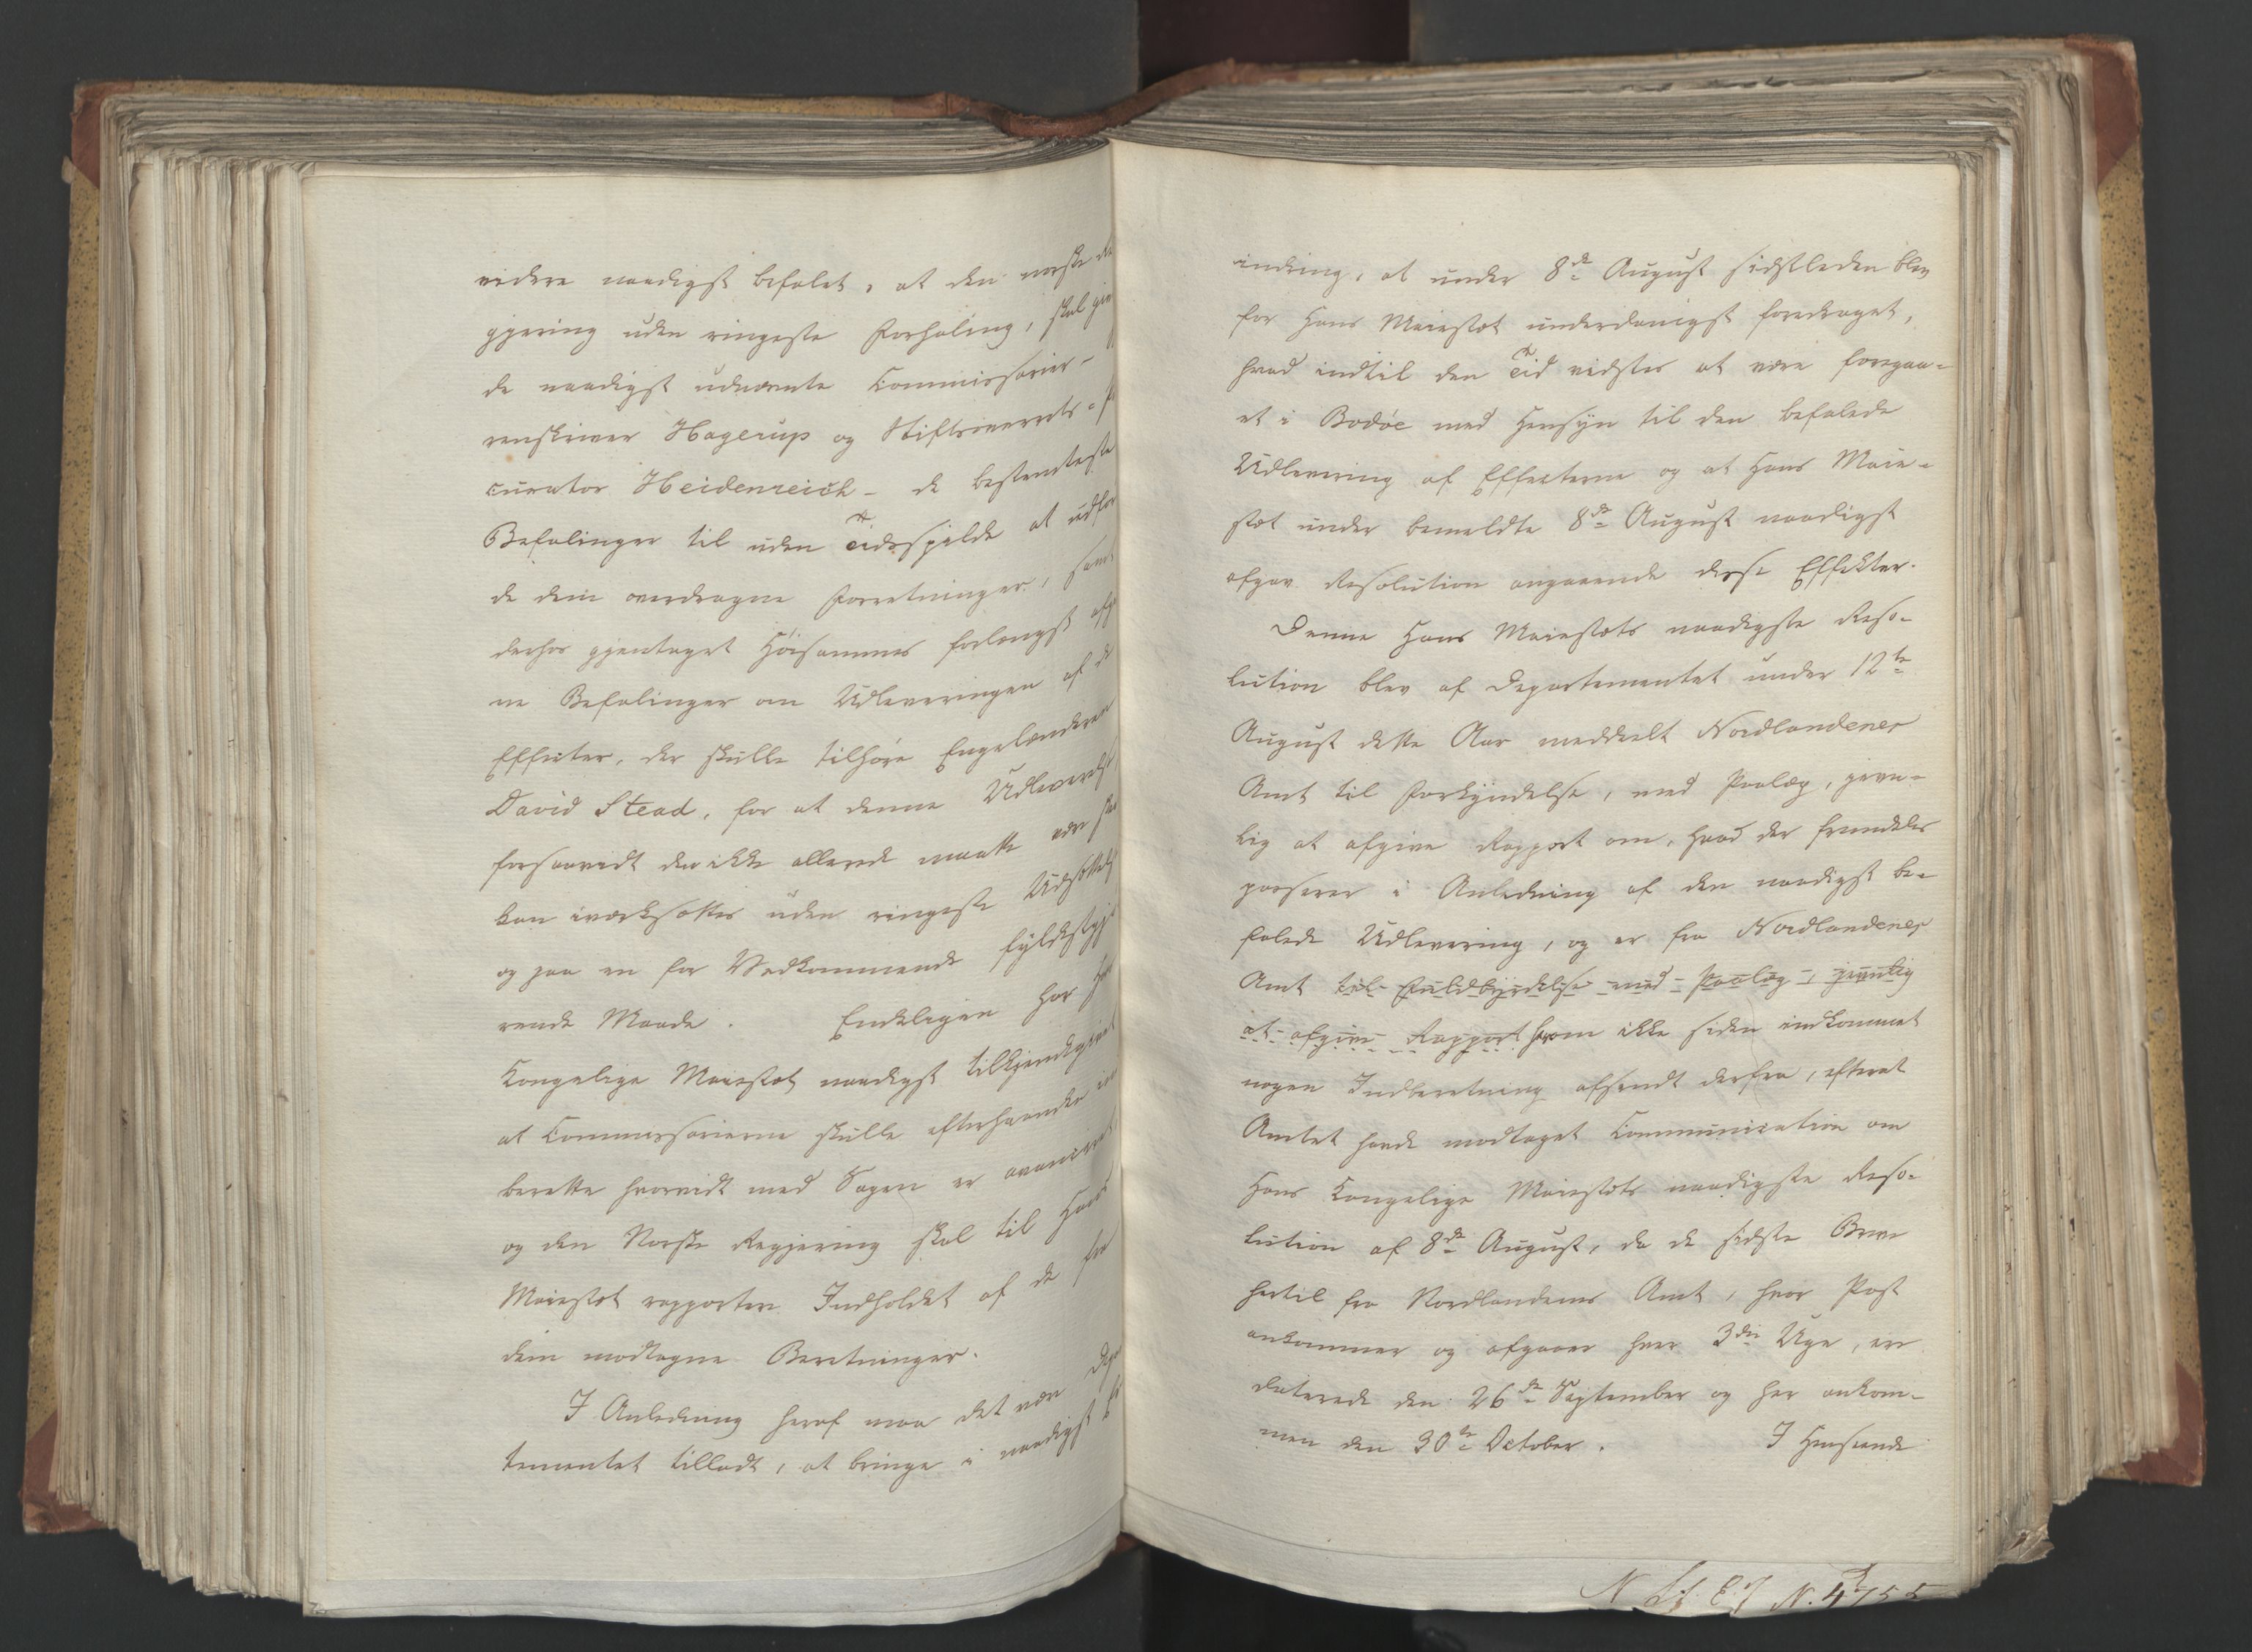 videre naadigst befalet, at den norske Re
gjering uden ringeste Forhaling, skal give
de naadigst udnævnte Commissarier -
renskriver Hagerup og Stiftsoverrets-P
curator Heidenreich - de bestemteste
Befalinger til uden Tidsspilde at udfør
de dem overdragne Forretninger, sam
derhos gjentaget Høisammes forlængst afg
ne Befalinger om Udleveringen af de
Effecter, der skulle tilhøre Engelænderen
David Stead, for at denne Udleverelse
forsaavidt den ikke allerede maatte være skee
kan iværksættes uden ringeste Udsættelse
og paa en for Vedkommende fyldestgjø
rende Maade. Endeligen har Hans
Kongelige Maiestæt naadigst tilkjendegivet
at Commissarierne skulle efterhaanden ind
berette hvorvidt med Sagen er avanceret
og den Norske Regjering skal til Hans
Maiestæt rapportere Indholdet af de fra
dem modtagne Beretninger.
I Anledning heraf maa det være Depar
tementet tilladt, at bringe i naadigst Er
indring, at under 8de August sidstleden blev
for Hans Maiestæt underdanigst foredraget,
hvad indtil den Tid vidstes at være foregaa-
et i Bodøe med Hensyn til den befalede
Udlevering af Effecterne og at Hans Maie-
stæt under bemeldte 8de August naadigst
afgav Resolution angaaende disse Effekter.
Denne Hans Maiestæts naadigste Reso-
lution blev af Departementet under 12te
August dette Aar meddeelt Nordlandenes
Amt til Forkyndelse, med Paalæg, jevn-
lig at afgive Rapport om, hvad der fremdeles
passerer i Anledning af den naadigst be-
falede Udlevering, og er fra Nordlandenes
Amt til Fuldbyrdelse med Paalæg, jevnlig
at afgive Rapport herom ikke siden indkommet
nogen Indberetning afsendt derfra, efterat
Amtet havde modtaget Communication om
Hans Kongelige Maiestæts naadigste Reso-
lution af 8de August, da de sidste Breve
hertil fra Nordlandenes Amt, hvor Post
ankommer og afgaaer hver 3die Uge, ere
daterede den 26de September og her ankom-
men den 30te October. I Henseende